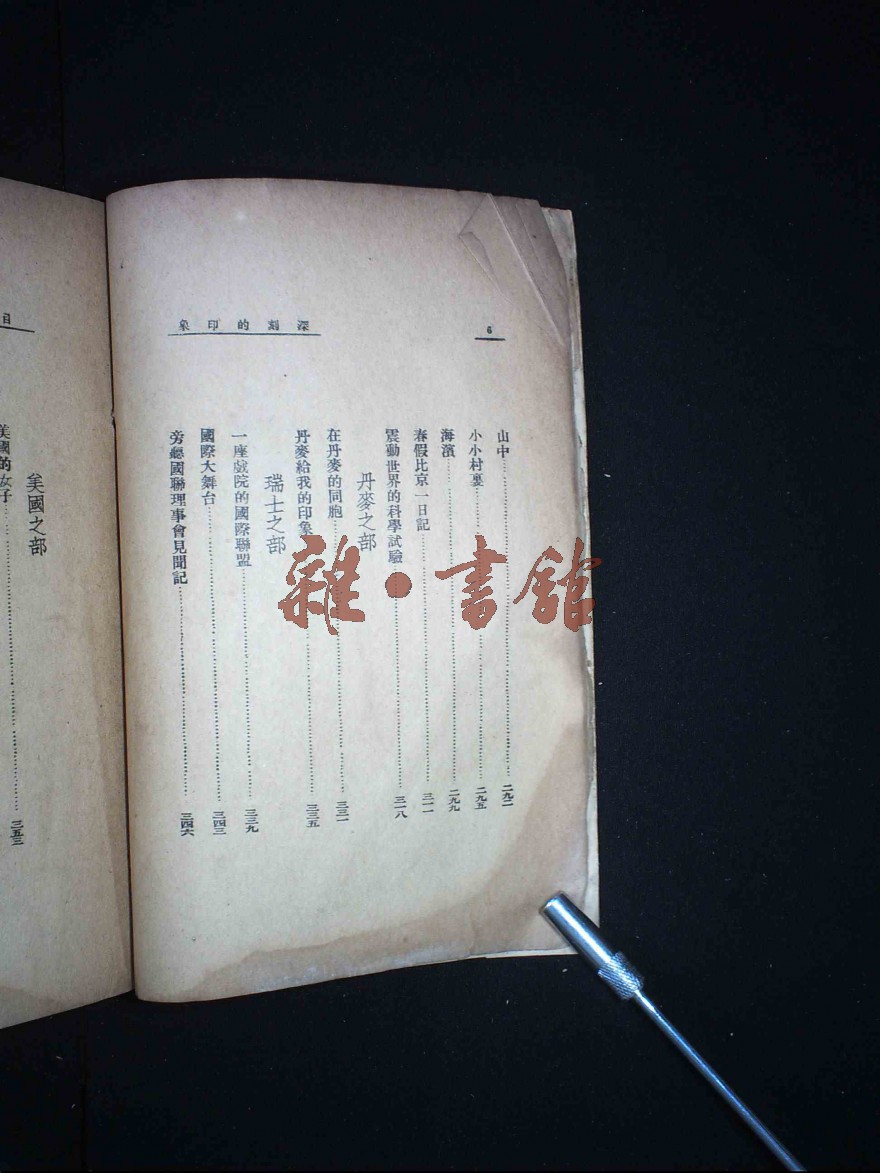 6
深刻的印象
山中……二九二
小小村裏……二九五
海濱……二九九
春假比京一日記……三一一
震動世界的科學試驗……三一八
丹麥之部
在丹麥的同胞……三三一
丹麥給我的印象……三三五
瑞士之部
一座戲院的國際聯盟……三三九
國際大舞台……三四三
旁聽國聯理事會見聞記……三四六
目
美國之部
美國的女子……三五三
雜·書館